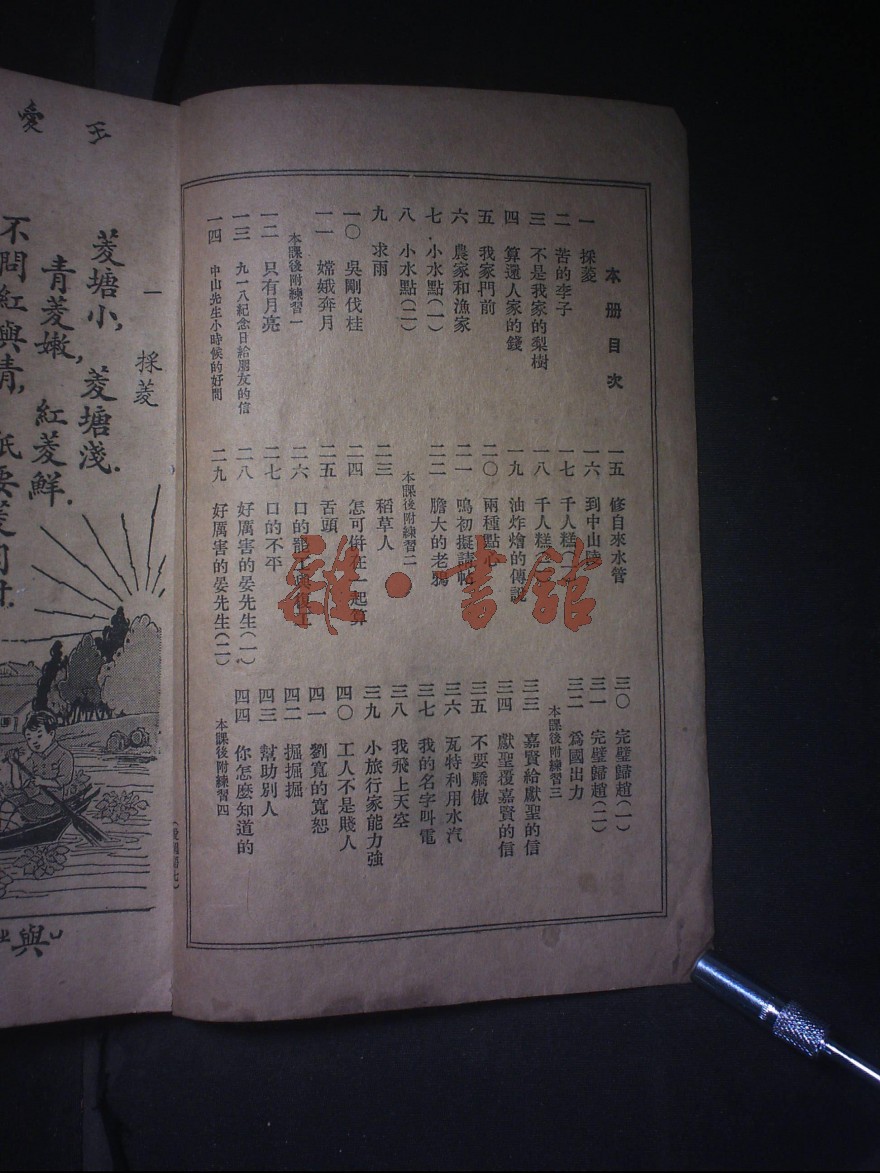 本册目次
一 採菱
二 苦的李子
三 不是我家的梨樹
四 算還人家的錢
五 我家門前
六 農家和漁家
七 小水點(一)
八 小水點(二)
九 求雨
一〇 吳剛伐桂
一一 嫦娥奔月
本課後附練習一
一二 只有月亮
一三 九一八紀念日給朋友的信
一四 中山先生小時候的好問
一五 修自來水管
一六 到中山陵
一七 千人糕
一八 千人糕
一九 油炸燴的傳說
二〇 兩種點心
二一 鳴初擬請帖
二二 膽大的老鴉
本課後附練習二
二三 稻草人
二四 怎可併在一起算
二五 舌頭
二六 口的罷工與復工
二七 口的不平
二八 好厲害的晏先生(一)
二九 好厲害的晏先生(二)
三〇 完璧歸趙(一)
三一 完璧歸趙(二)
三二 爲國出力
本課後附練習三
三三 嘉賢給獻聖的信
三四 獻聖覆嘉賢的信
三五 不要驕傲
三六 瓦特利用水汽
三七 我的名字叫電
三八 我飛上天空
三九 小旅行家能力強
四〇 工人不是賤人
四一 劉寬的寬恕
四二 掘掘掘
四三 幫助別人
四四 你怎麼知道的
本課後附練習四
雜·書館
一 採菱
菱塘小，菱塘淺．
青菱嫩，紅菱鮮．
不問紅與青，
愛
與